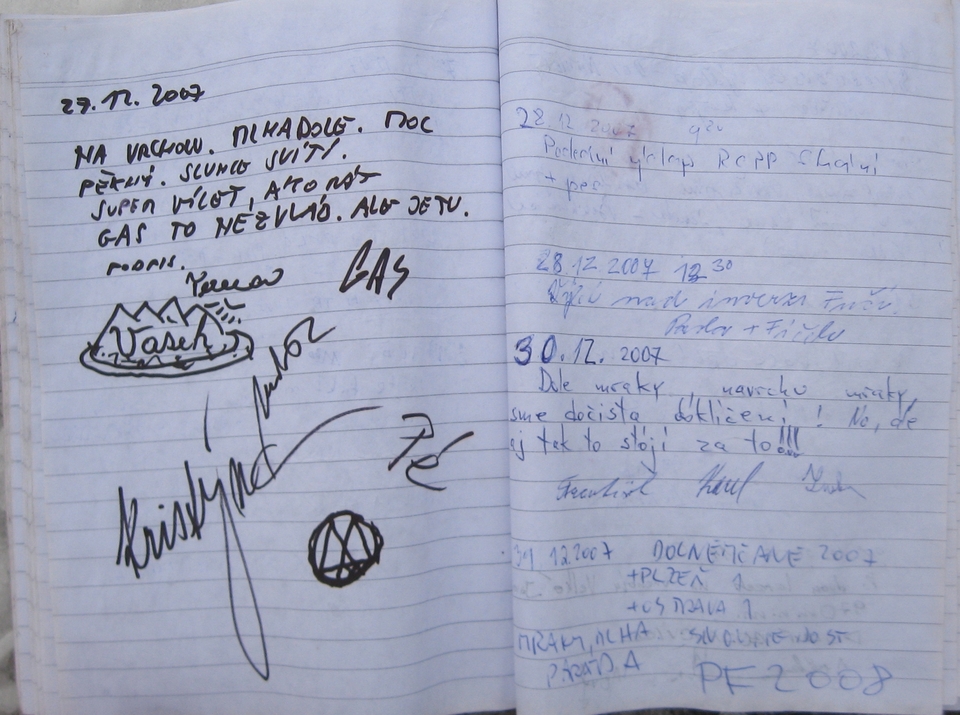 27.12.2007
NA VRCHOLU. MLHA DOLE. MOC
PĚKNÝ. SLUNCE SVÍTÍ.
SUPER VÍLET, AKORÁT
GAS TO NEZVLÁD. ALE JE TU.
PODPIS.
GAS
Vašek
Kristýna
Pé
28 12 2007 9 20
Poslední výšlap
+ pes
28.12 2007 12 30
nad inverzí
30.12. 2007
Dole mraky, navrchu mraky,
sme dočista doklíčení! No, ale
aj tak to stójí za to!!!
František Karel
31 12.2007 DOLNĚMČANÉ 2007
+PLZEŇ 1
+OSTRAVA 1
MRAKY, MLHA
PARÁDA
PF 2008